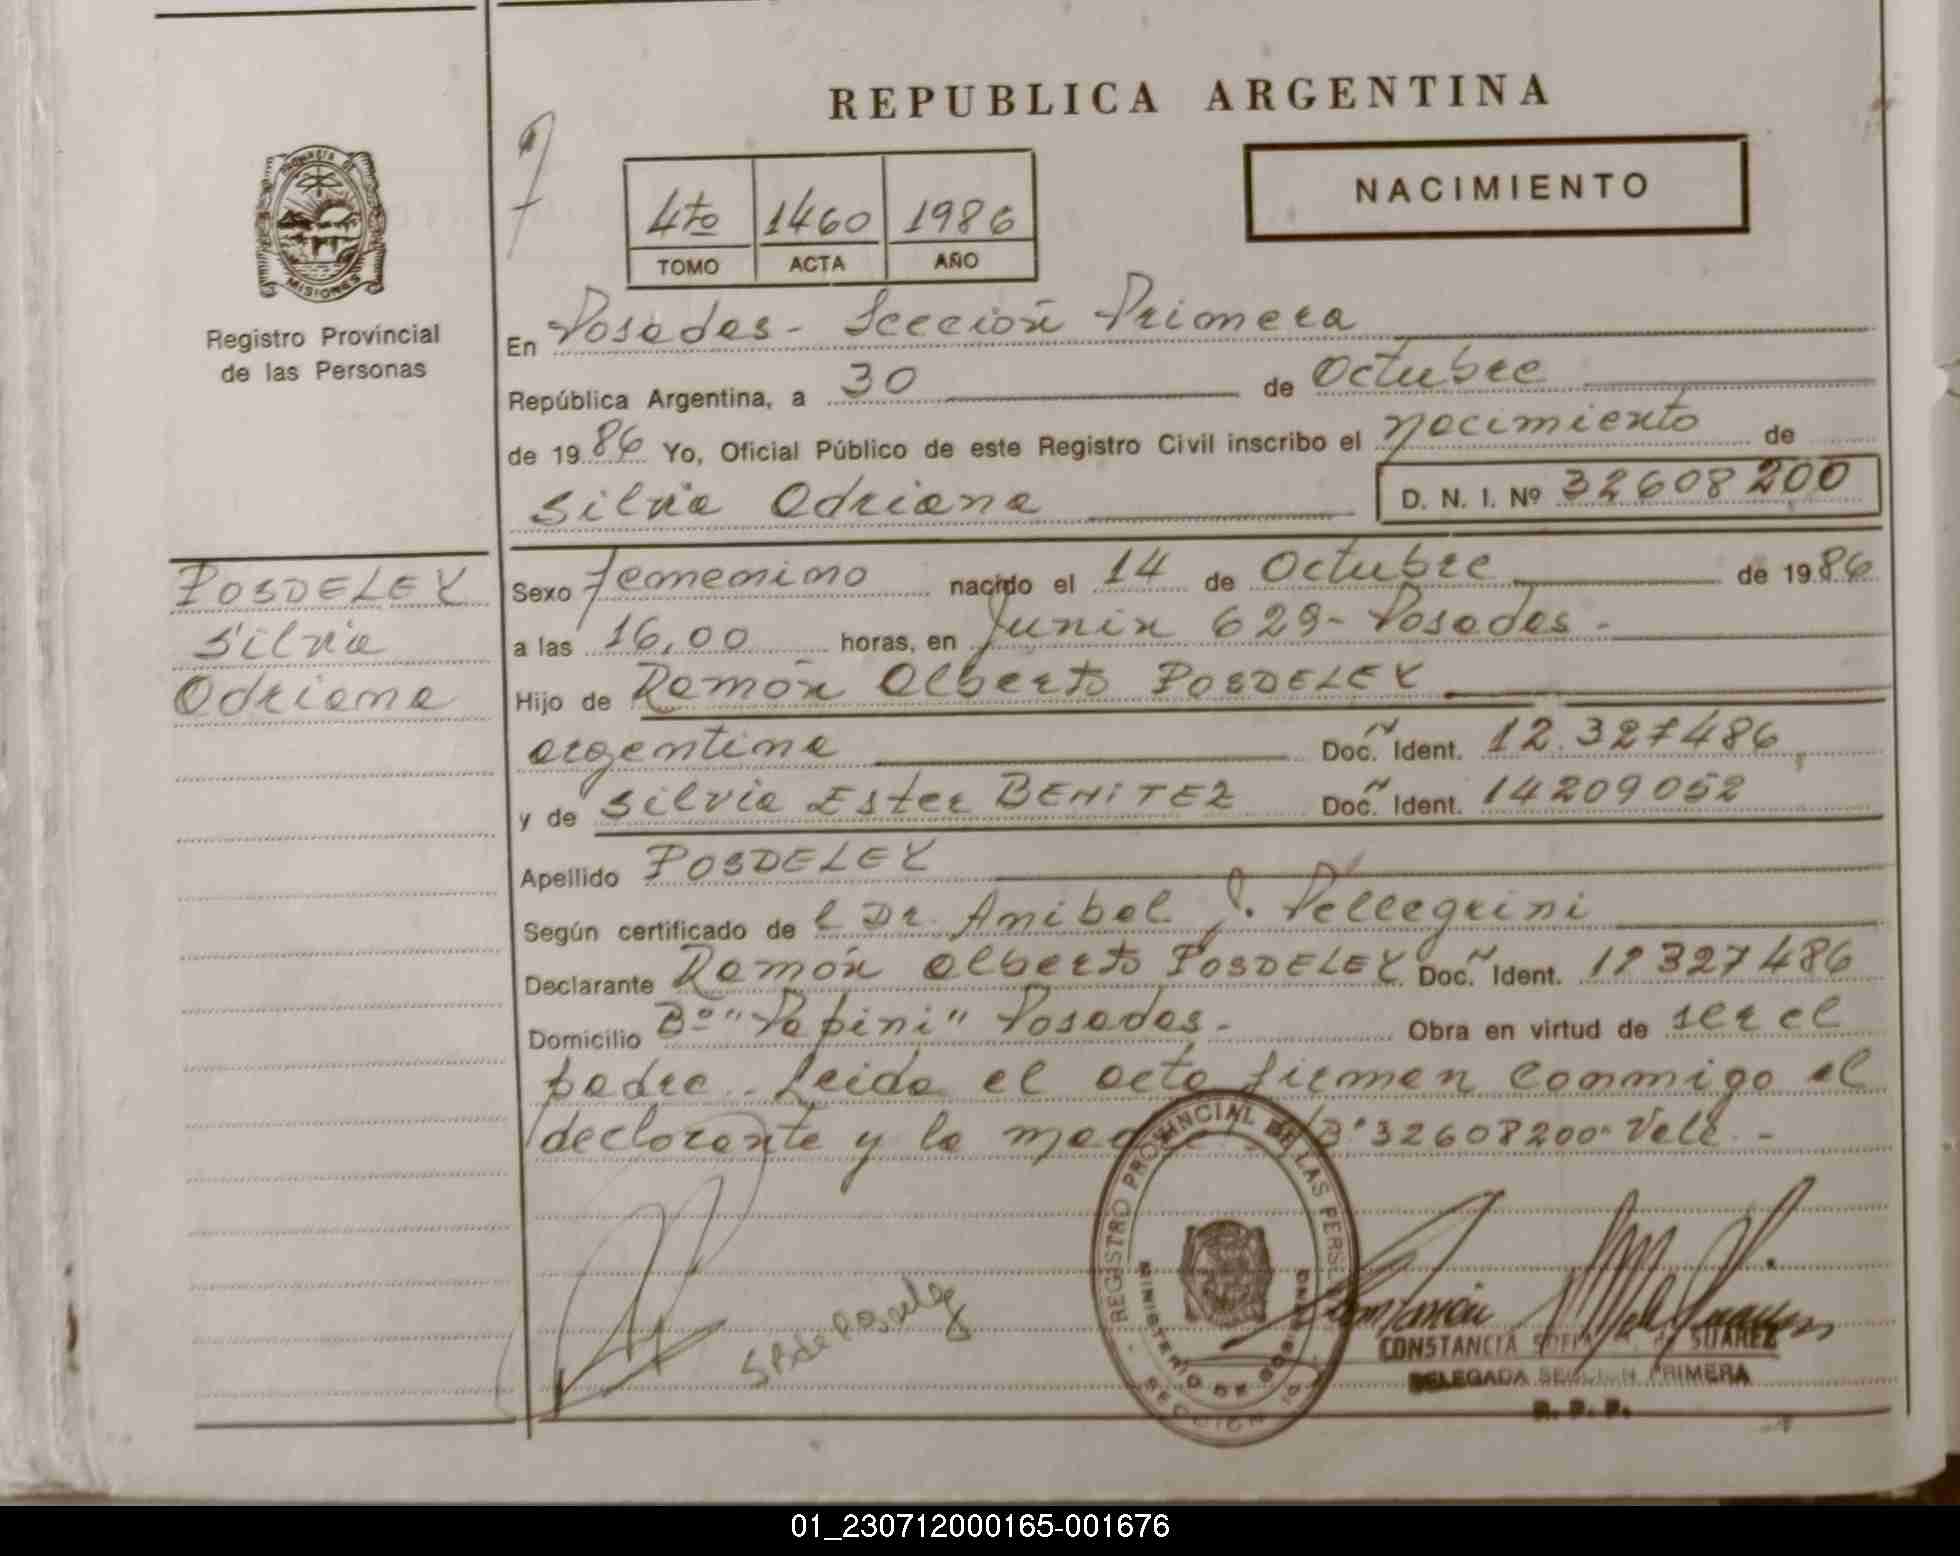 REPUBLICA ARGENTINA
NACIMIENTO
4to 1460 1986
TOMO ACTA AÑO
PROVINCIA DE
MISIONES
Registro Provincial
de las Personas
En Posadas - Sección Primera
República Argentina, a 30 de Octubre
de 1986 Yo, Oficial Público de este Registro Civil inscribo el nacimiento de
Silvia Adriana D. N. I. Nº 32608200
POSDELEY
Silvia
Adriana
Sexo femenino nacido el 14 de Octubre de 1986
a las 16,00 horas, en Junín 629 - Posadas -
Hijo de Ramón Alberto POSDELEY
argentina Doc. Ident. 12.327486
y de Silvia Ester BENITEZ Doc. Ident. 14209052
Apellido POSDELEY
Según certificado de l Dr. Anibal J. Pellegrini
Declarante Ramón Alberto POSDELEY Doc. Ident. 12327486
Domicilio Bº "Papini" Posadas - Obra en virtud de ser el
padre. Leída el acta firman conmigo el
declarante y la 32608200 - Vale -
REGISTRO PROVINCIAL DE LAS
MINISTERIO DE
SECCION
CONSTANCIA SUAREZ
DELEGADA SECCION PRIMERA
R. P. P.
01_230712000165-001676